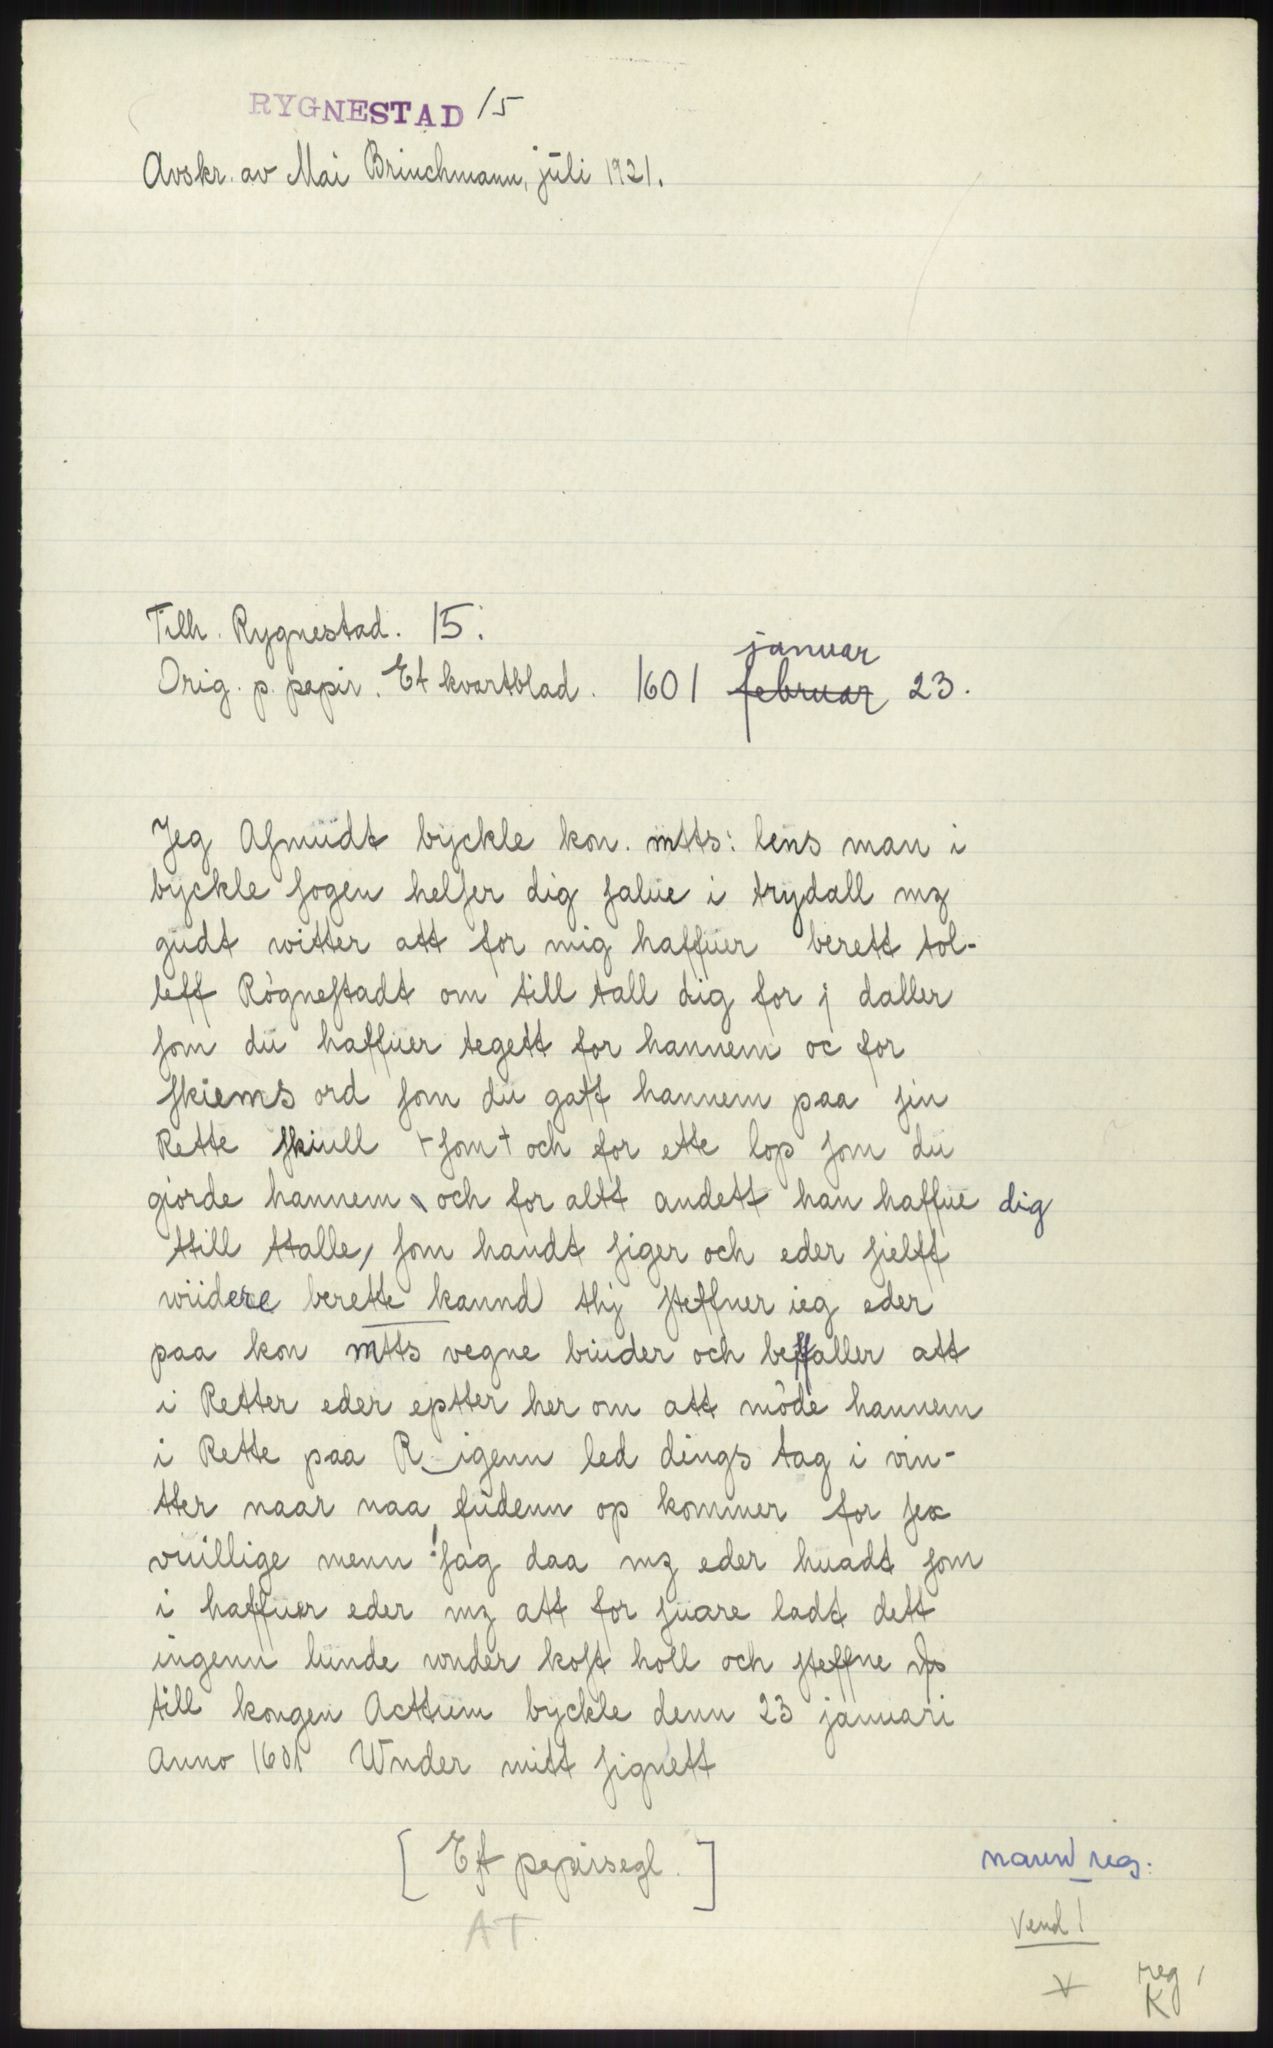 RYGNESTAD 15
Avskr. av Mai Brinchmann, juli 1921.
Tilh. Rygnestad. 15.
januar
Orig. p. papir. Et kvartblad. 1601 februar 23.
Jeg Aſmŭdt bÿckle kon. mtts: lens man i
bÿckle ſogen helſer dig ſalŭe i trydall mz
gŭdt witter att for mig haffŭer berett tol-
leff Rögneſtadt om till tall dig for j daller
ſom dŭ haffŭer tegett for hannem oc for
ſkiems ord ſom dŭ gaff hannem paa ſin
Rette ſkiull + ſom + och for ette lop ſom dŭ
giorde hannem och for altt andett han haffŭe dig
ttill ttalle, ſom handt ſiger och eder ſielff
wiidere berette kannd thj ſteffner ieg eder
paa kon mtts vegne biuder och beffaller att
i Retter eder eptter her om att möde hannem
i Rette paa R_igenn led dings tag i vin-
tter naar naa fŭdenn op kommer for ſex
vuillige menn ! ſag daa mz eder huadt ſom
i haffuer eder mz att for ſŭare ladt dett
ingenn lŭnde vnder koſt holl och ſteffne
till kongen Acttŭm bÿckle denn 23 januari
Anno 1601 Wnder mitt ſignett
[ Et papirsegl. ]
AT.
navn reg.
Vend!
reg
K